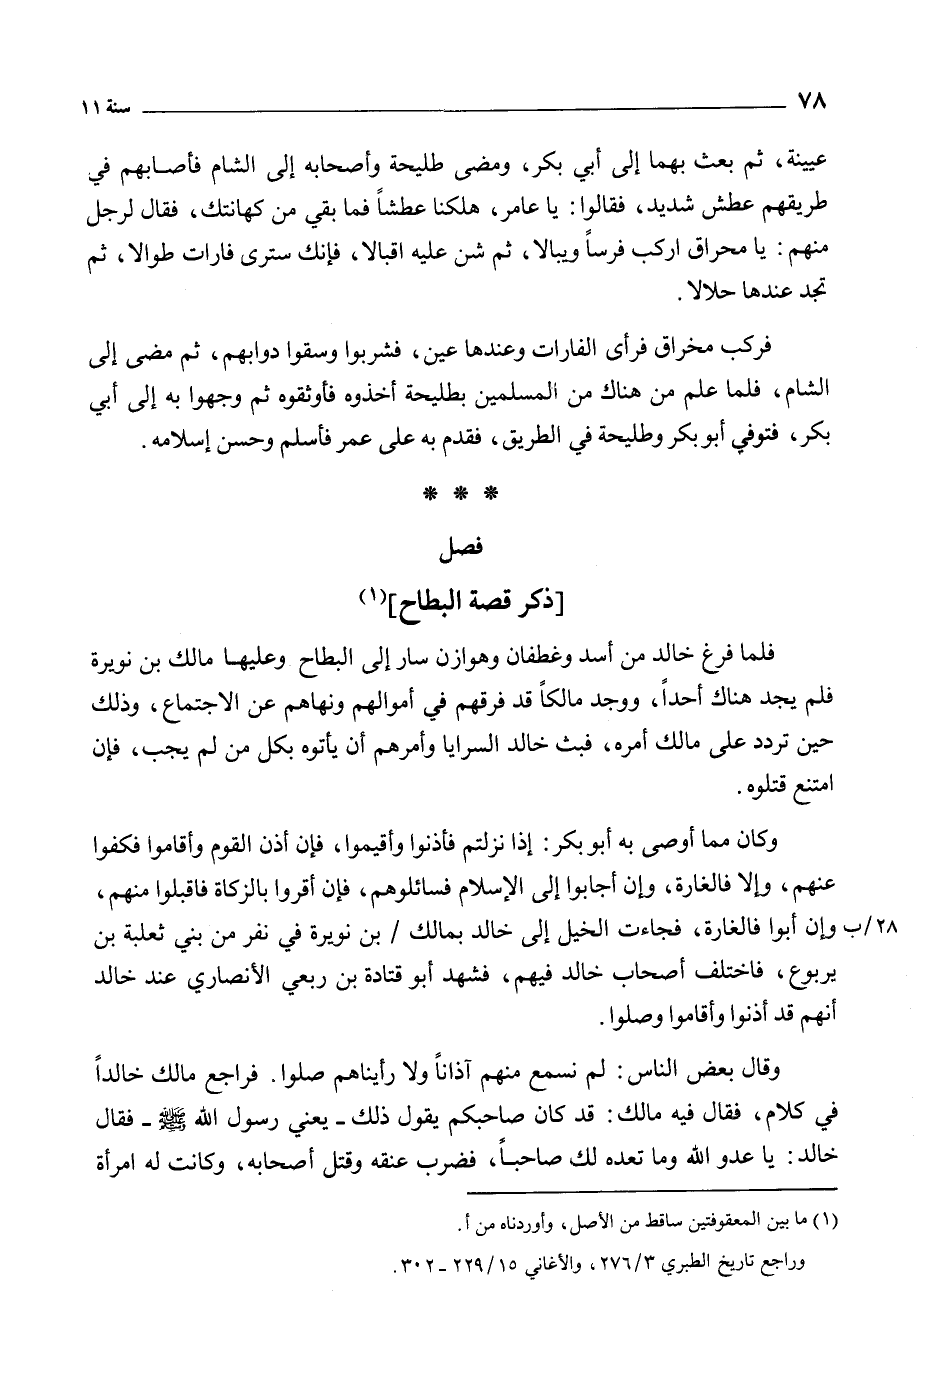 ٧٨ سنة ١١
عيينة، ثم بعث بهما إلى أبي بكر، ومضى طليحة وأصحابه إلى الشام فأصـابهم في
طريقهم عطش شديد، فقالوا: يا عامر، هلكنا عطشاً فما بقي من كهانتك، فقال لرجل
منهم: يا محراق اركب فرساً ويبالا، ثم شن عليه اقبالا، فإنك سترى فارات طوالا، ثم
تجد عندها حلالا.
فركب مخراق فرأى الفارات وعندها عين، فشربوا وسقوا دوابهم، ثم مضى إلى
الشام، فلما علم من هناك من المسلمين بطليحة أخذوه فأوثقوه ثم وجهوا به إلى أبي
بكر، فتوفي أبو بكر وطليحة في الطريق، فقدم به على عمر فأسلم وحسن إسلامه.
* * *
فصل
[ذكر قصة البطاح](١)
فلما فرغ خالد من أسد وغطفان وهوازن سار إلى البطاح وعليهـا مالك بن نويرة
فلم يجد هناك أحداً، ووجد مالكاً قد فرقهم في أموالهم ونهاهم عن الاجتماع، وذلك
حين تردد على مالك أمره، فبث خالد السرايا وأمرهم أن يأتوه بكل من لم يجب، فإن
امتنع قتلوه.
وكان مما أوصى به أبو بكر: إذا نزلتم فأذنوا وأقيموا، فإن أذن القوم وأقاموا فكفوا
عنهم، وإلا فالغارة، وإن أجابوا إلى الإسلام فسائلوهم، فإن أقروا بالزكاة فاقبلوا منهم،
٢٨/ب وإن أبوا فالغارة، فجاءت الخيل إلى خالد بمالك / بن نويرة في نفر من بني ثعلبة بن
يربوع، فاختلف أصحاب خالد فيهم، فشهد أبو قتادة بن ربعي الأنصاري عند خالد
أنهم قد أذنوا وأقاموا وصلوا.
وقال بعض الناس: لم نسمع منهم آذاناً ولا رأيناهم صلوا. فراجع مالك خالداً
في كلام، فقال فيه مالك: قد كان صاحبكم يقول ذلك ـ يعني رسول الله ﷺ ـ فقال
خالد: يا عدو الله وما تعده لك صاحبـاً، فضرب عنقه وقتل أصحابه، وكانت له امرأة
(١) ما بين المعقوفتين ساقط من الأصل، وأوردناه من أ.
وراجع تاريخ الطبري ٣/٢٧٦، والأغاني ١٥/٢٢٩ ـ ٣٠٢.